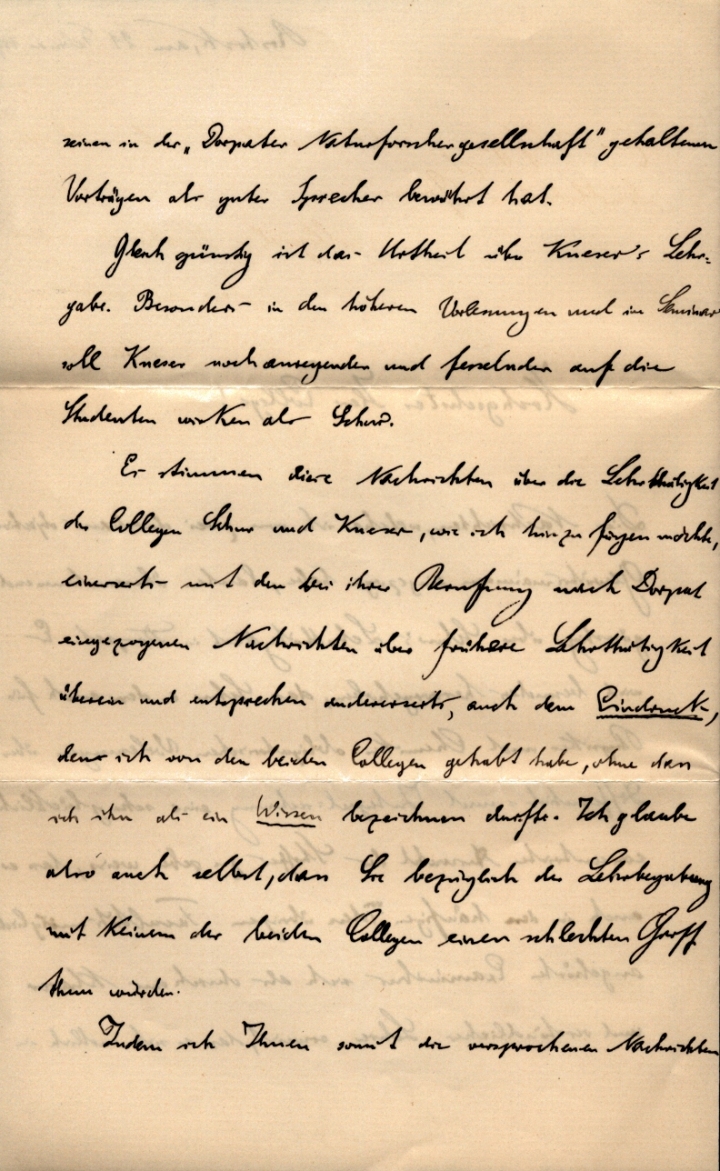 seinen in der „Dorpater Naturforschergesellschaft“ gehaltenen
Vorträgen als guter Sprecher bewährt hat.
Gleich günstig ist das Urtheil über Kneser's Lehr-
gabe. Besonders in den höheren Vorlesungen und im Seminar
soll Kneser noch anregender und fesselnder auf die
Studenten wirken als Schur.
Es stimmen diese Nachrichten über die Lehrthätigkeit
der Collegen Schur und Kneser, wie ich hinzu fügen möchte,
einerseits mit den bei ihrer Berufung nach Dorpat
eingezogenen Nachrichten über frühere Lehrthätigkeit
überein und entsprechen andererseits, auch dem Eindruck,
den ich von den beiden Collegen gehabt habe, ohne dass
ich ihn als ein Wissen bezeichnen durfte. Ich glaube
also auch selbst, dass Sie bezüglich der Lehrbegabung
mit Keinem der beiden Collegen einen schlechten Griff
thun würden.
Indem ich Ihnen somit die versprochenen Nachrichten